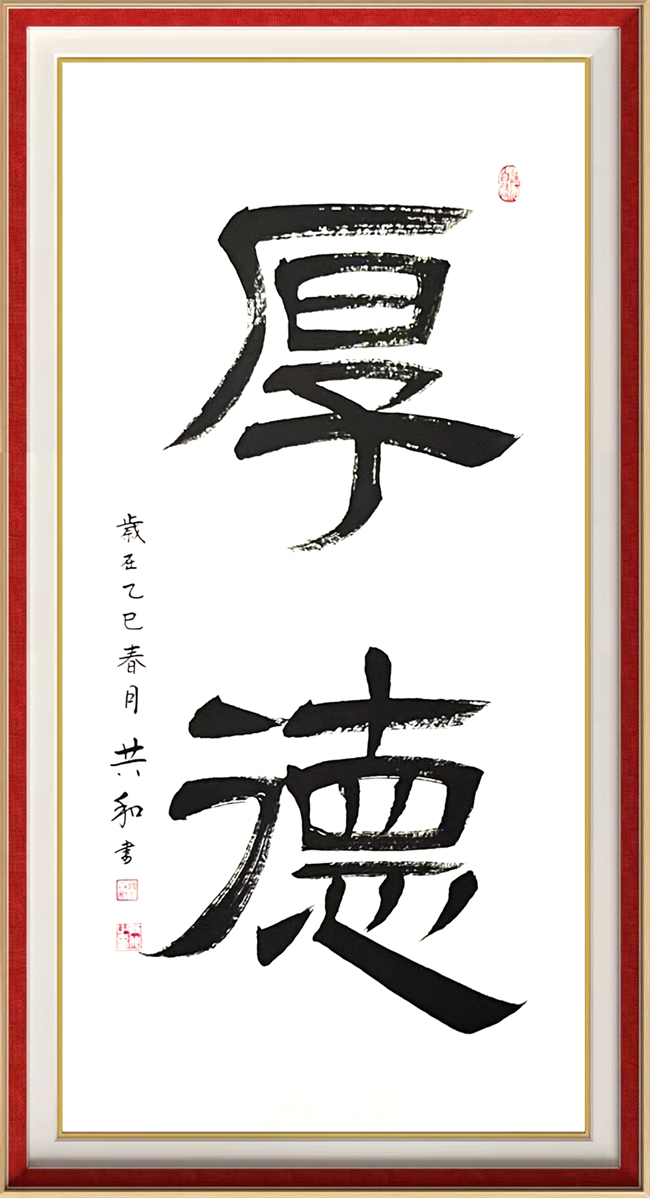 厚德
歳在乙巳春月共和書